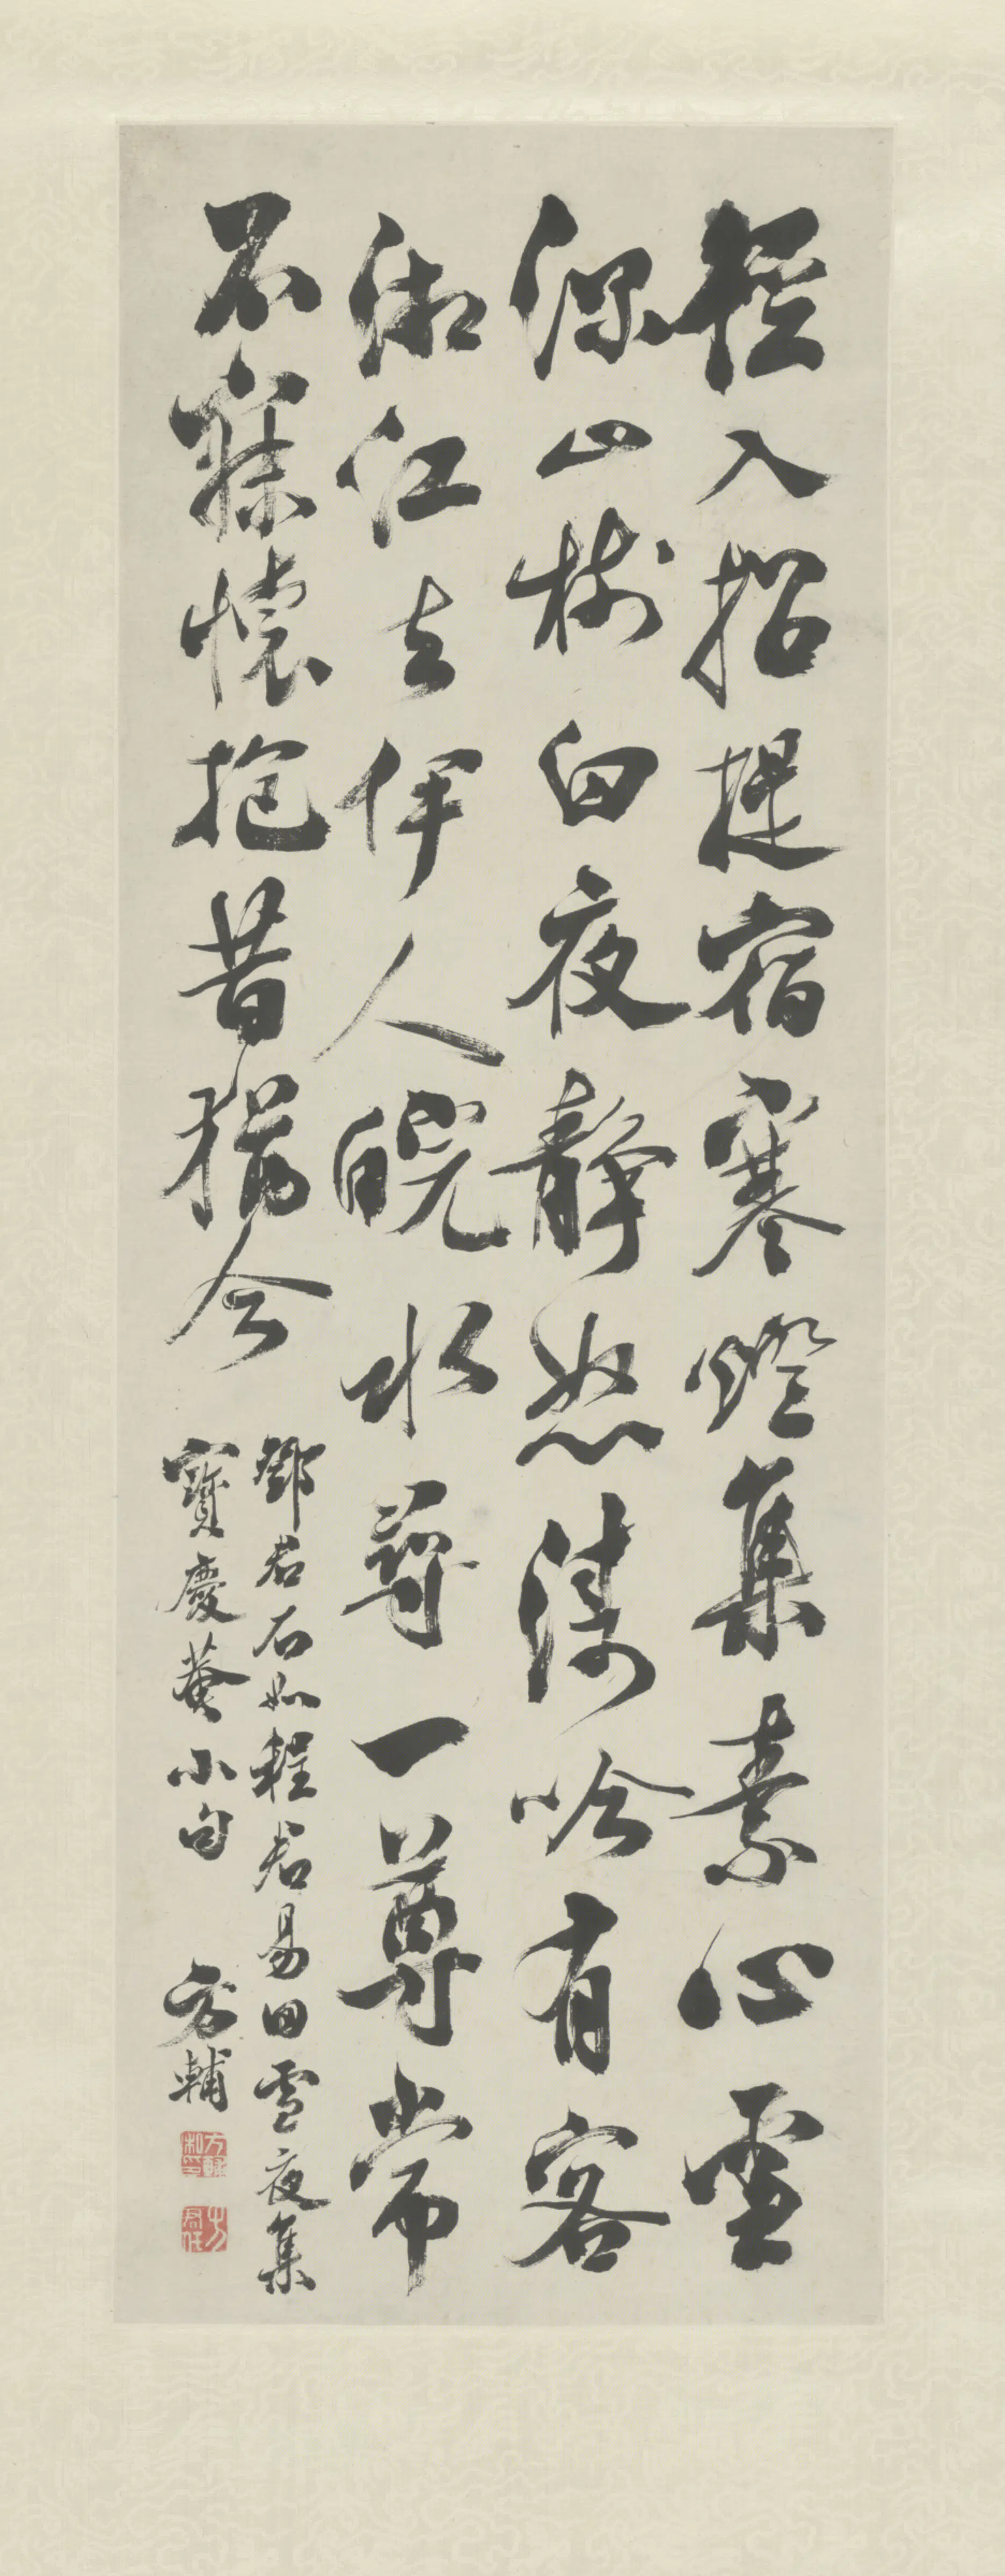 徑入招提宿寒燈集素心雪
深山樹白夜靜怒濤吟有客
湘江去伊人皖水尋一尊常
不寐懷抱昔猶今
鄧君石如程君易田雪夜集
寶慶菴小句 方輔
方輔私印